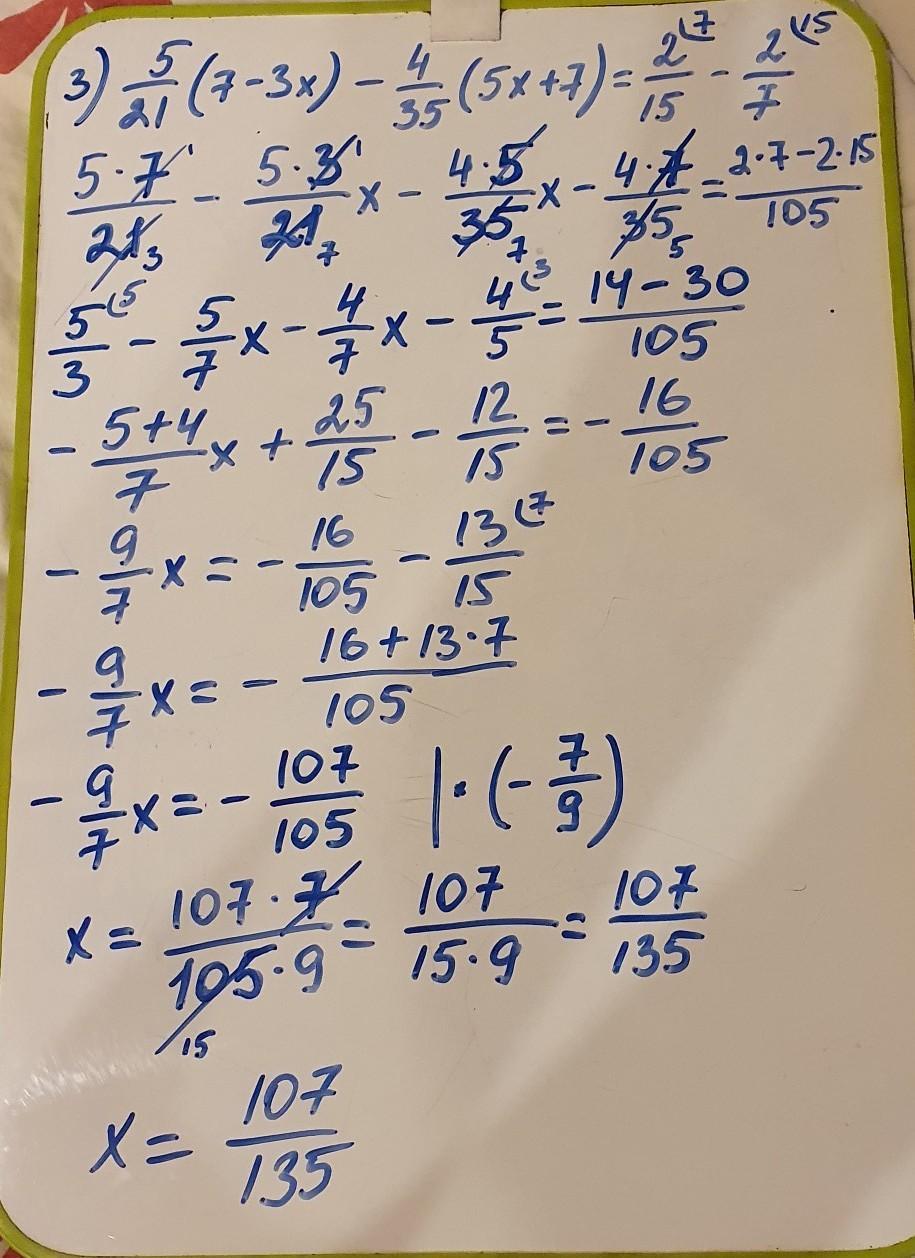 3) 5/21 (7-3x) - 4/35 (5x+7) = 2/15 (7 - 2/7 (15
5·7/21 3 1 - 5·3/21 7 1 x - 4·5/35 7 x - 4·7/35 5 = 2·7-2·15/105
5/3 (5 - 5/7 x - 4/7 x - 4/5 (3 = 14-30/105
- 5+4/7 x + 25/15 - 12/15 = - 16/105
- 9/7 x = - 16/105 - 13/15 (7
- 9/7 x = - 16+13·7/105
- 9/7 x = - 107/105 |·(- 7/9)
x = 107·7/105·9 15 = 107/15·9 = 107/135
x = 107/135